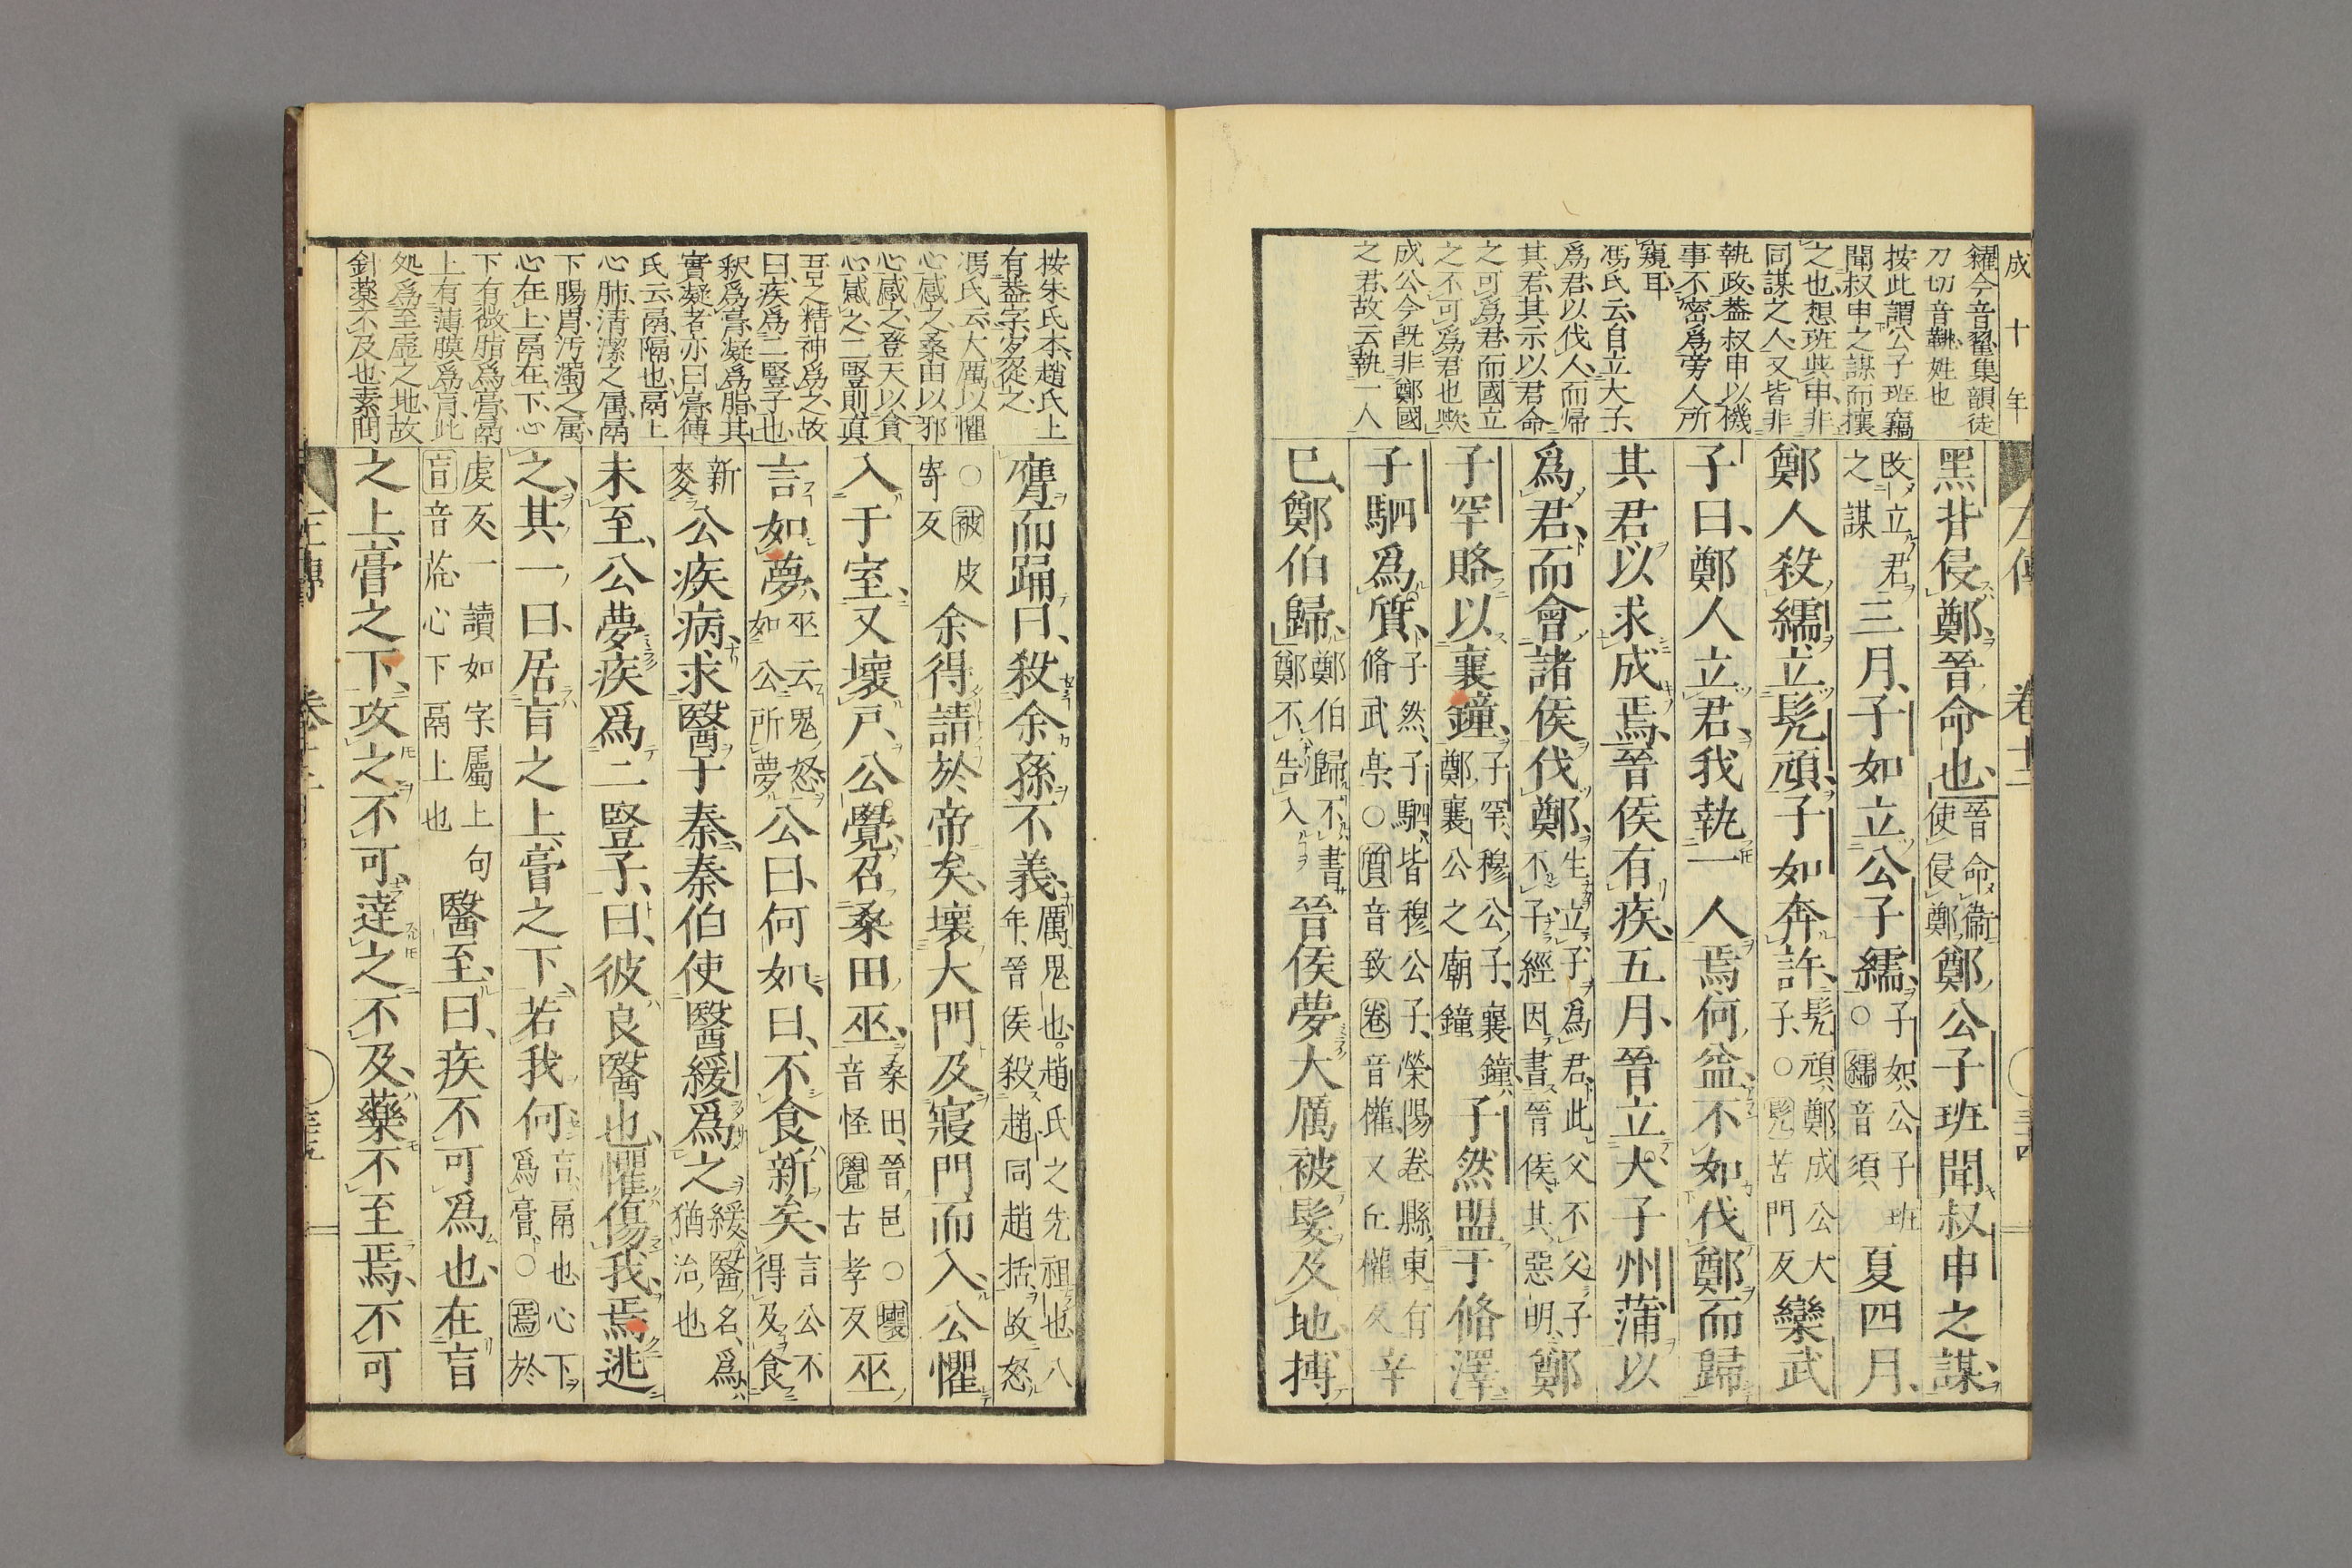 成十年
糴今音翟集韻徒
刀切音鞉姓也
按此謂公子班竊
聞叔申之謀而攘
之也想班與申非
同謀之人又皆非
執政蓋叔申以機
事不密爲旁人所
窺耳
馮氏云自立大子
爲君以伐人而歸
其君其示以君命
之可爲君而國立
之不可爲君也歟
成公今既非鄭國
之君故云執一人
黑背侵鄭晉命也晉命衞使侵鄭鄭公子班聞叔申之謀
改立君之謀三月子如立公子繻子如公子班○繻音須夏四月
鄭人殺繻立髡頑子如奔許髡頑鄭成公大子○髡苦門反欒武
子曰鄭人立君我執一人焉何益不如伐鄭而歸
其君以求成焉晉侯有疾五月晉立大子州蒲以
爲君而會諸侯伐鄭生立子爲君此父不父子不子經因書晉侯其惡明鄭
子罕賂以襄鐘子罕穆公子襄鐘鄭襄公之廟鐘子然盟于脩澤
子駟爲質子然子駟皆穆公子滎陽卷縣東有脩武亭○質音致卷音權又丘權反辛
巳鄭伯歸鄭伯歸不書鄭不告入晉侯夢大厲被髮及地搏
按朱氏本趙氏上
有蓋字宜從之
馮氏云大厲以懼
心感之桑田以邪
心感之登天以貪
心感之二豎則眞
吾之精神爲之故
曰疾爲二豎子也
釈爲膏凝爲脂其
實凝者亦曰膏傅
氏云鬲隔也鬲上
心肺清潔之属鬲
下腸胃汚濁之属
心在上鬲在下心
下有微脂爲膏鬲
上有薄膜爲肓此
処爲至虚之地故
針藥不及也素問
膺而踊曰殺余孫不義厲鬼也趙氏之先祖也八年晉侯殺趙同趙括故怒
○被皮寄反余得請於帝矣壞大門及寢門而入公懼
入于室又壞戸公覺召桑田巫桑田晉邑○壞音怪覺古孝反巫
言如夢巫云鬼怒如公所夢公曰何如曰不食新矣言公不得及食
新麥公疾病求醫于秦秦伯使醫緩爲之緩醫名爲猶治也
未至公夢疾爲二豎子曰彼良醫也懼傷我焉逃
之其一曰居肓之上膏之下若我何肓鬲也心下爲膏○焉於
虔反一讀如字屬上句肓音荒心下鬲上也醫至曰疾不可爲也在肓
之上膏之下攻之不可達之不及藥不至焉不可